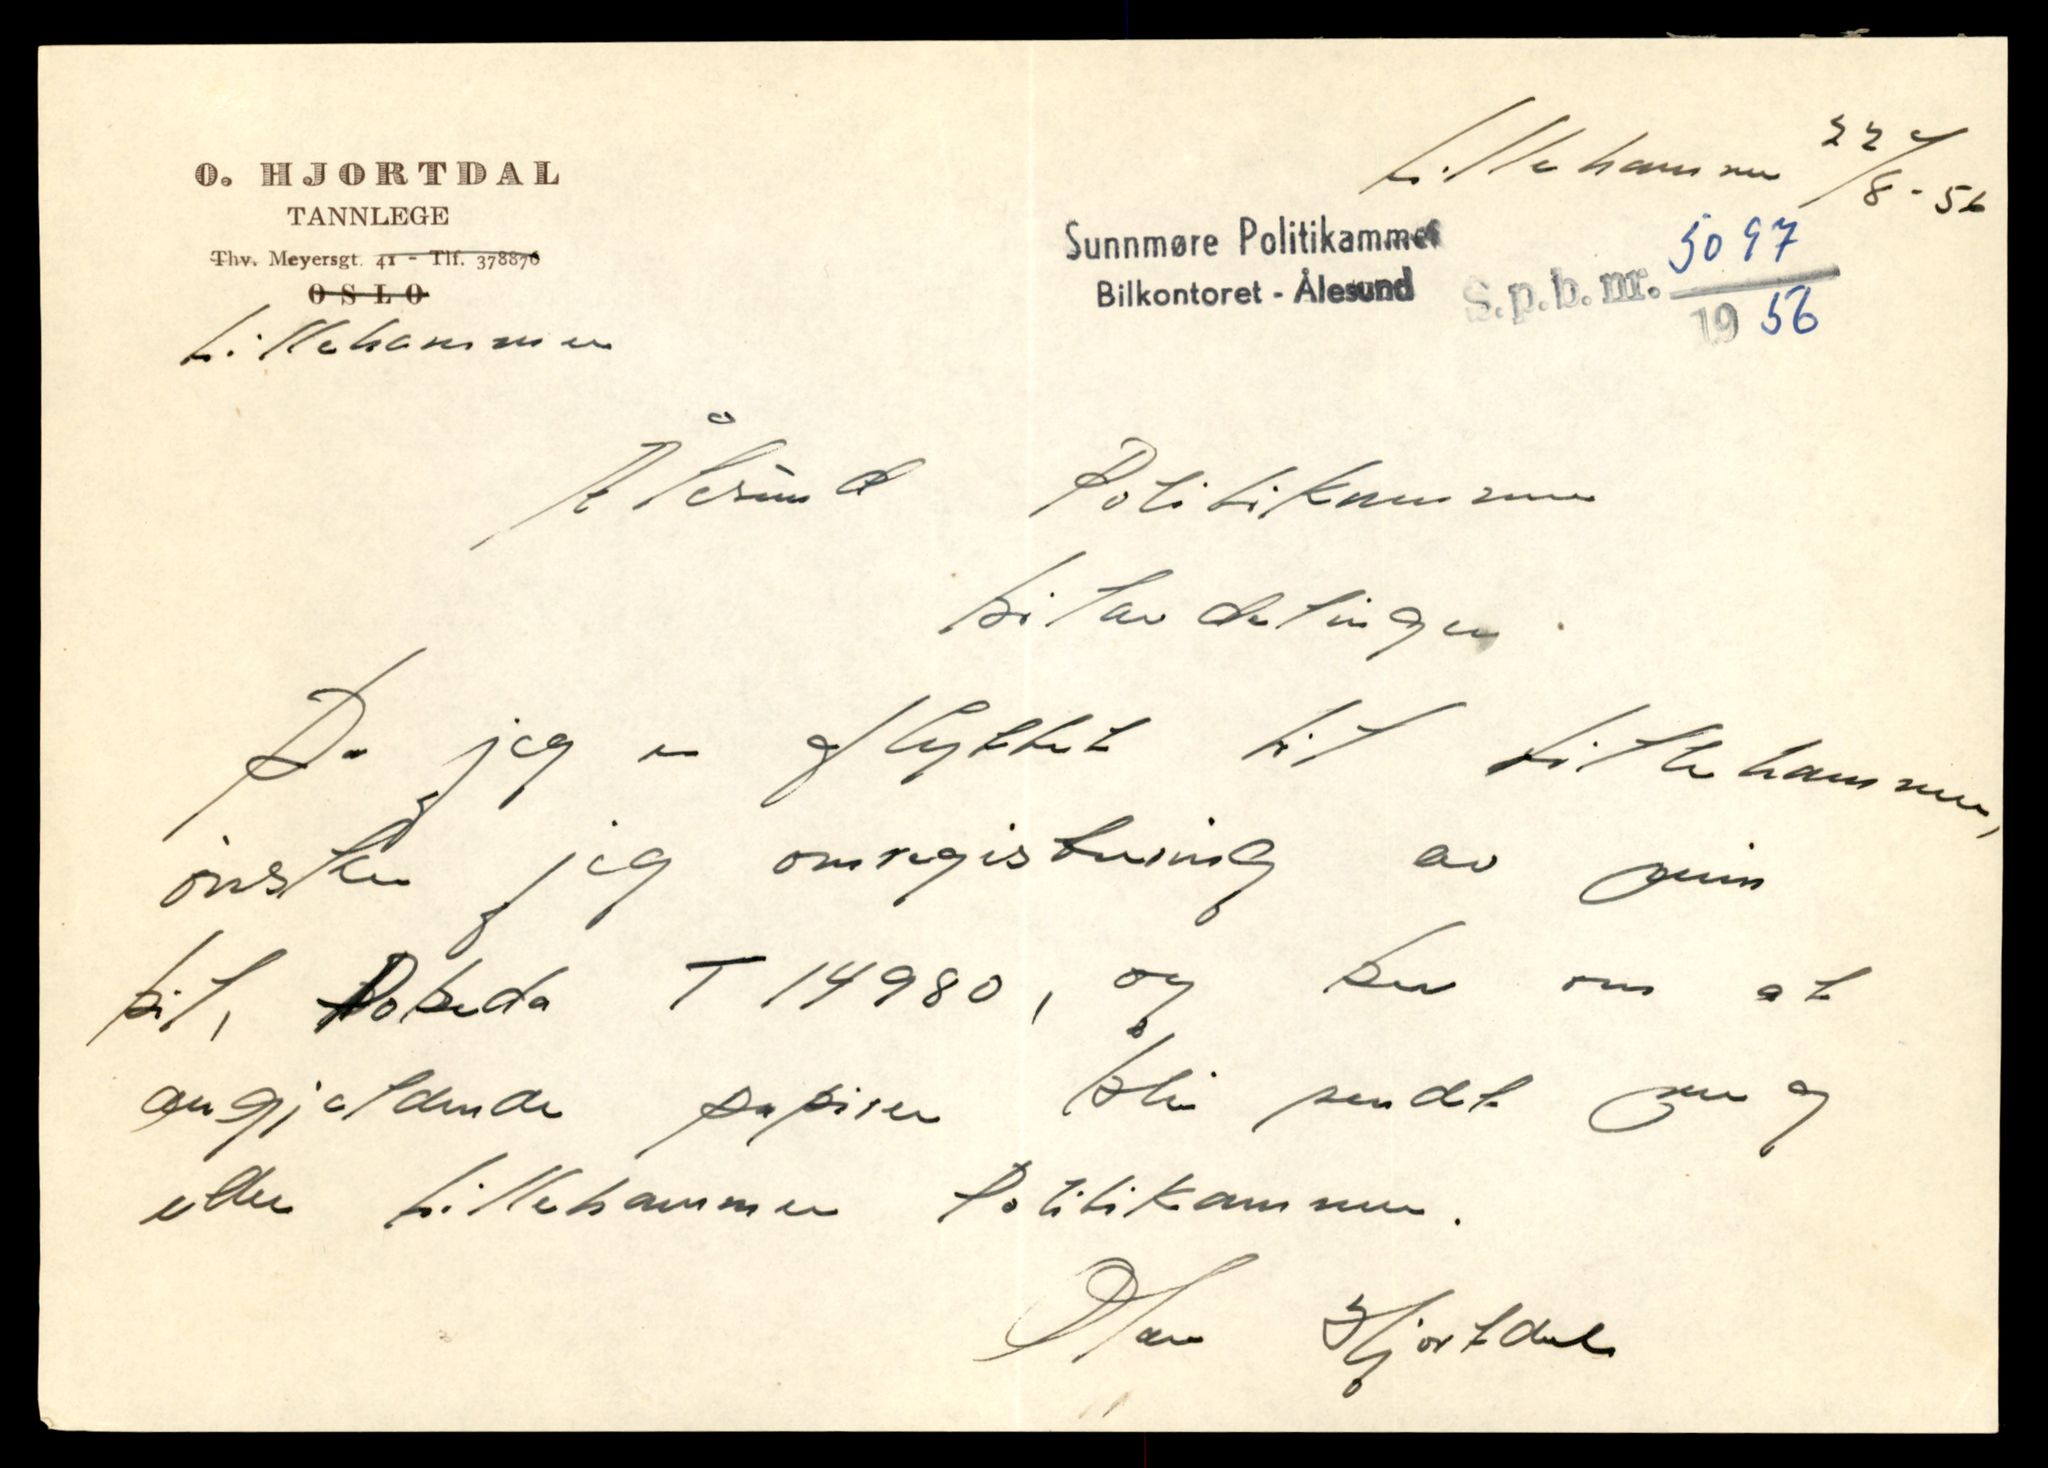 O. HJORTDAL
TANNLEGE
Thv. Meyersgt. 41 - Tlf. 378876
OSLO
Lillehammer
Lillehammer 22/8-56
Sunnmøre Politikammer
Bilkontoret - Ålesund
S.p.b. nr. 5097
19 56
Ålesund Politikammer
bilavdelingen.
Da jeg er flyttet til Lillehammer,
ønsker jeg omregistrering av min
bil, Pobeda T 14980, og ber om at
angjeldende papirer blir sendt meg
eller Lillehammer Politikammer.
Olav Hjortdal